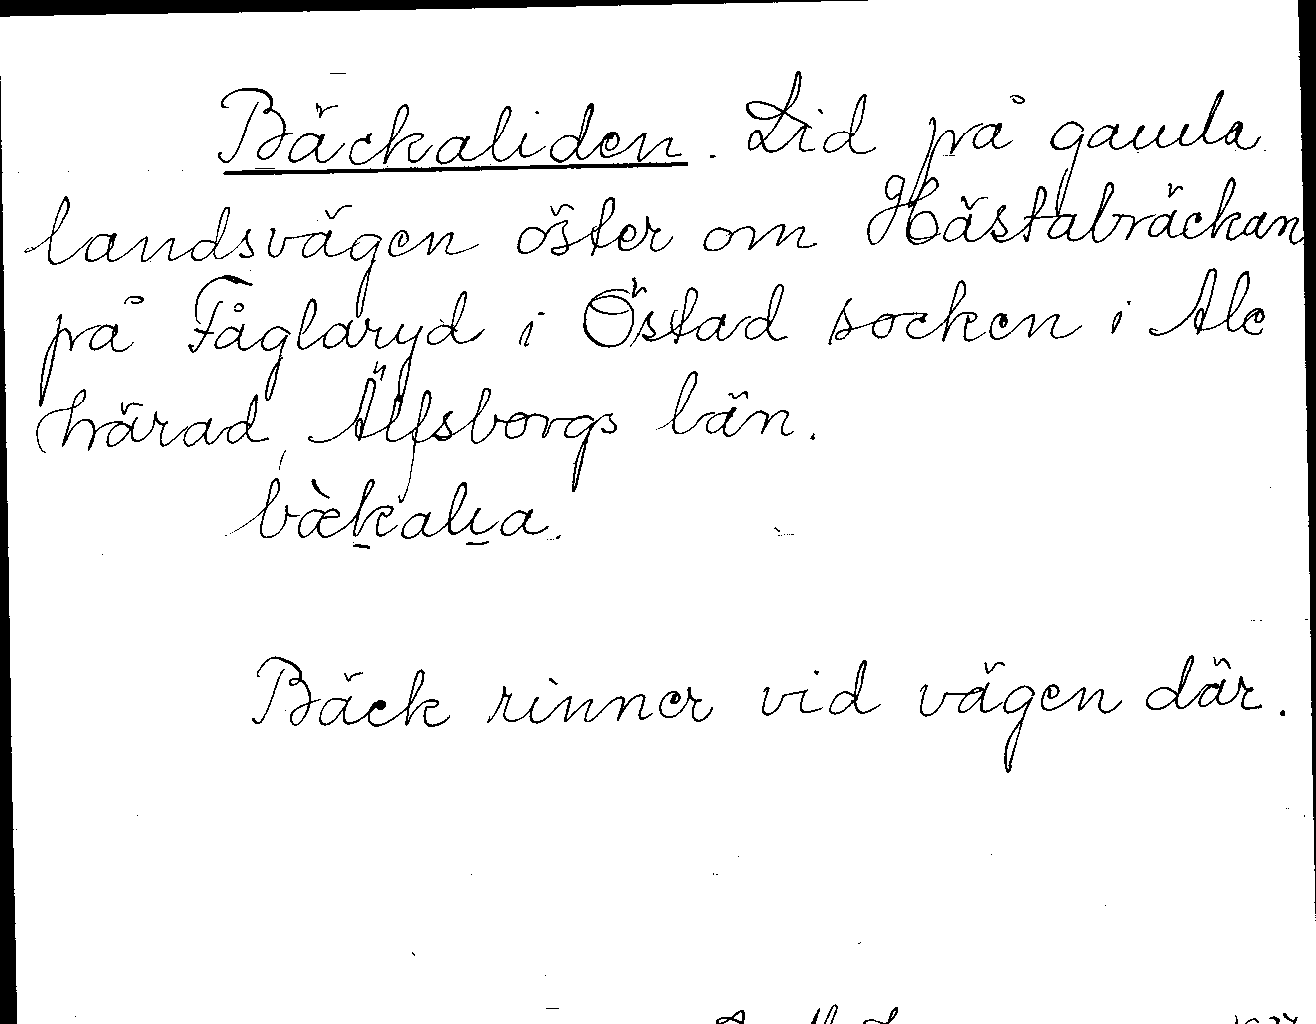 Bäckaliden. Lid på gamla
landsvägen öster om Hästabräckan
på Fåglaryd i Östad socken i Ale
härad, Älfsborgs län.
bæ̀k̠alı̠a.
Bäck rinner vid vägen där.